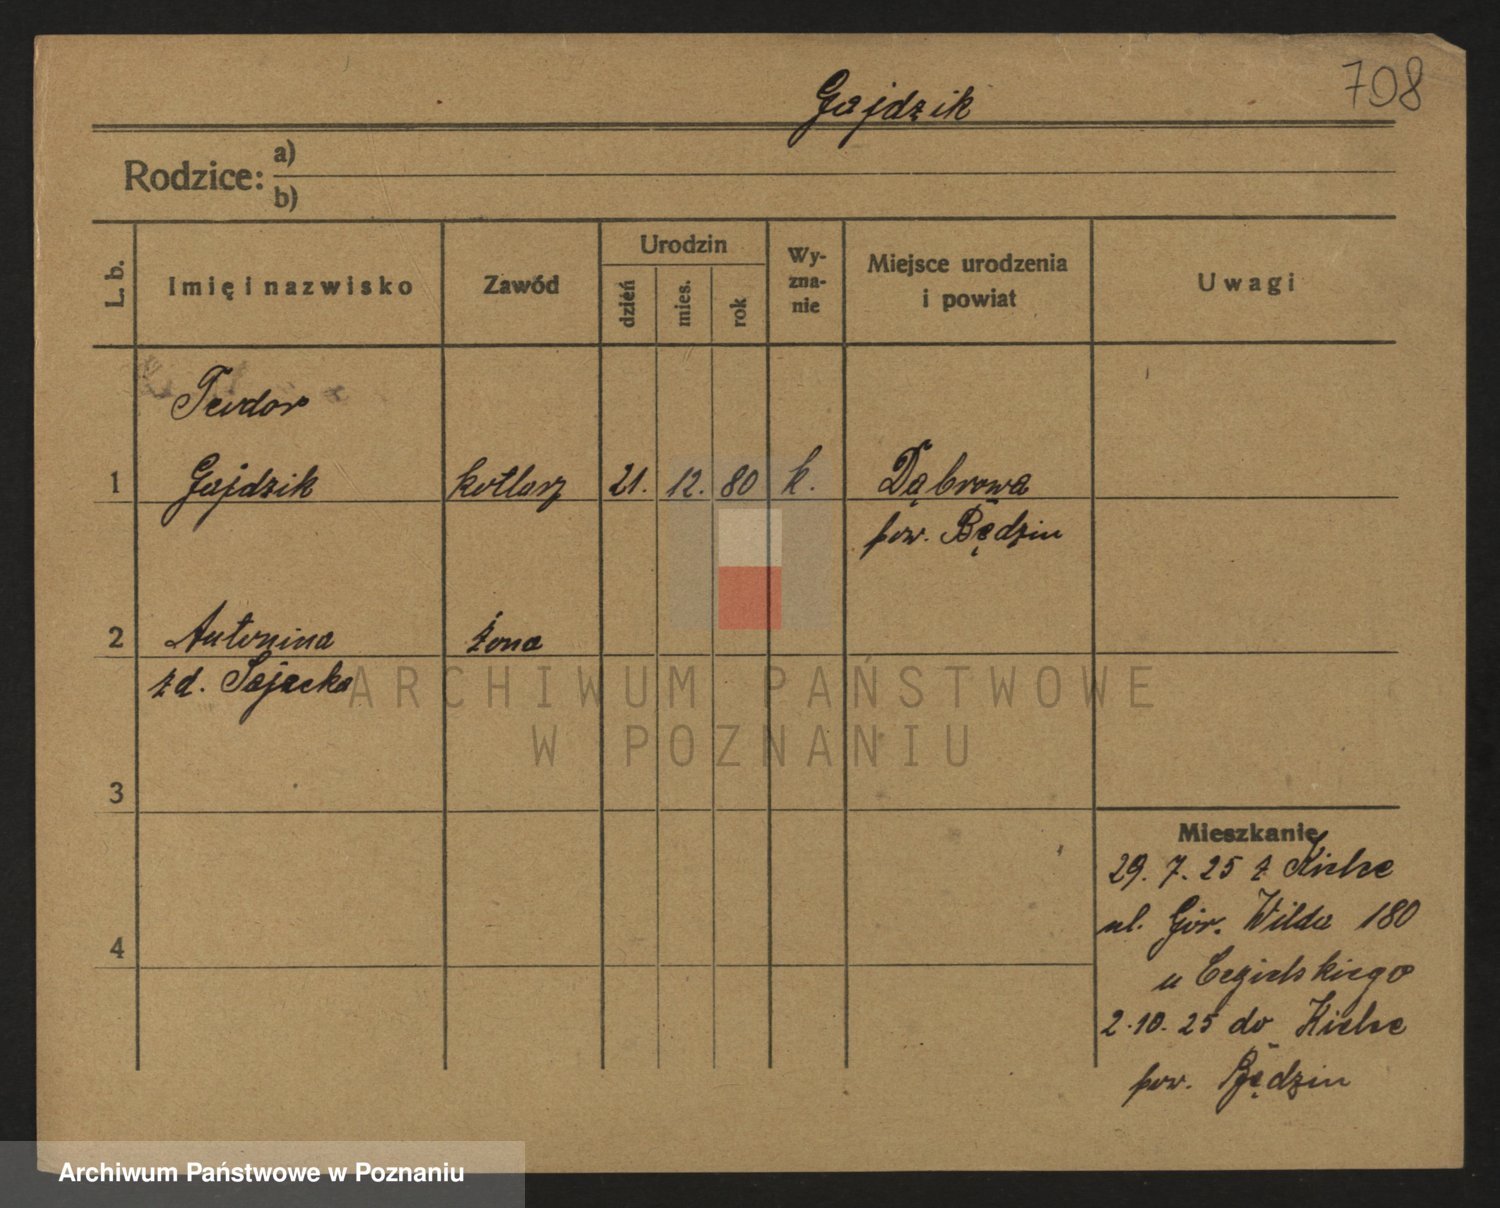 708
Gajdzik
Rodzice: a)
b)
L. b.
Imię i nazwisko
Zawód
Urodzin
dzień
mies.
rok
Wy-
zna-
nie
Miejsce urodzenia
i powiat
Uwagi
Teodor
1 Gajdzik kotlarz 21. 12. 80 k. Dąbrowa
pow. Będzin
2 Antonina żona
zd. Sajecka
ARCHIWUM PAŃSTWOWE
W POZNANIU
3
Mieszkanie
29. 7. 25 z Kielce
ul. Gór. Wilda 180
4
u Cegielskiego
2.10.25 do Kielce
pow. Będzin
Archiwum Państwowe w Poznaniu